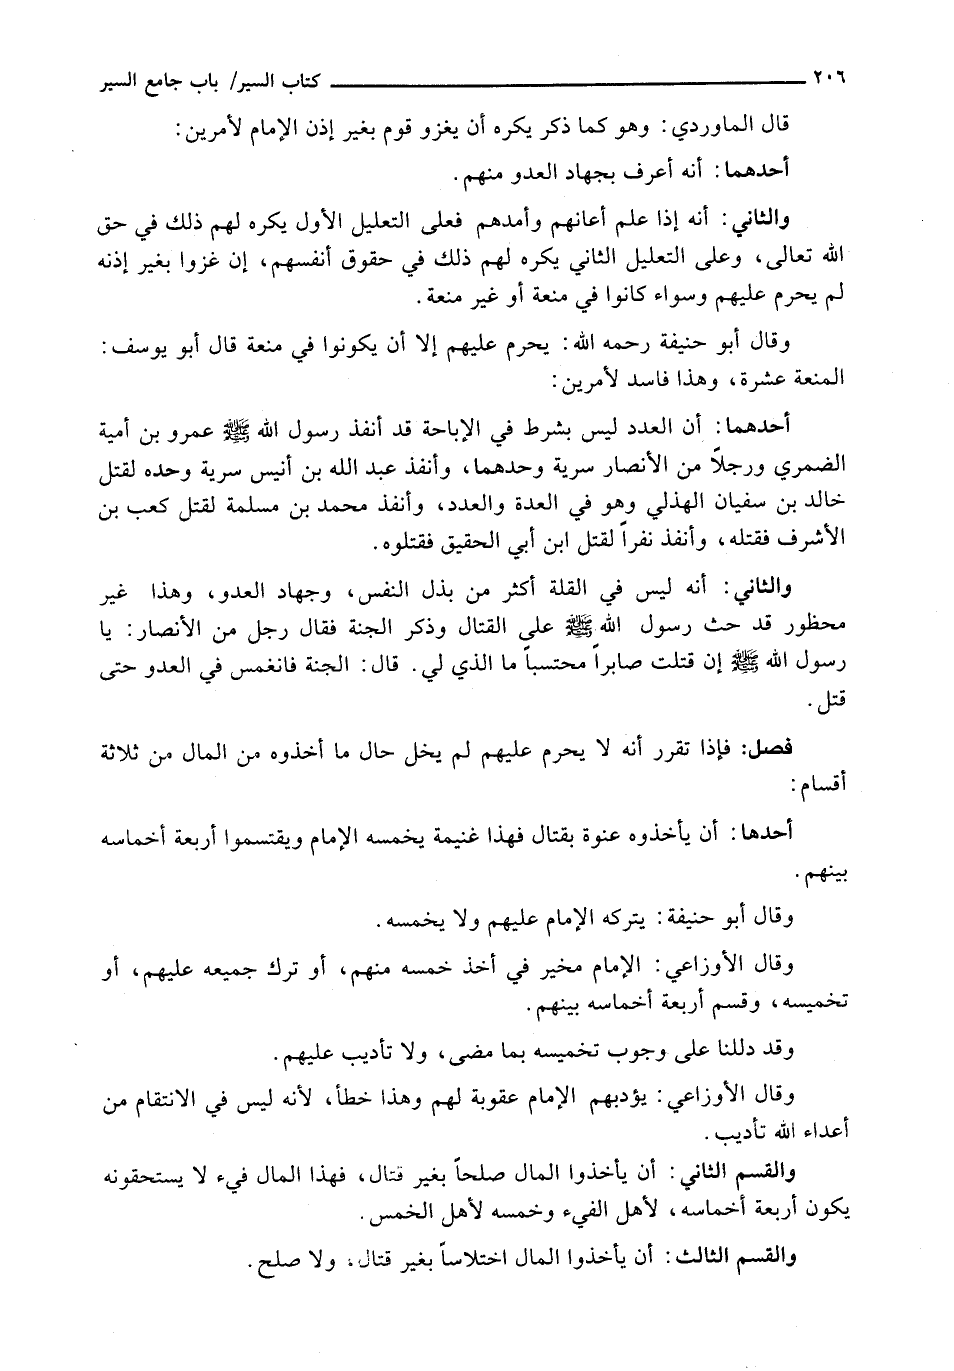 ٢٠٦ كتاب السير/ باب جامع السير
قال الماوردي: وهو كما ذكر يكره أن يغزو قوم بغير إذن الإمام لأمرين:
أحدهما: أنه أعرف بجهاد العدو منهم.
والثاني: أنه إذا علم أعانهم وأمدهم فعلى التعليل الأول يكره لهم ذلك في حق
الله تعالى، وعلى التعليل الثاني يكره لهم ذلك في حقوق أنفسهم، إن غزوا بغير إذنه
لم يحرم عليهم وسواء كانوا في منعة أو غير منعة.
وقال أبو حنيفة رحمه الله: يحرم عليهم إلا أن يكونوا في منعة قال أبو يوسف:
المنعة عشرة، وهذا فاسد لأمرين:
أحدهما: أن العدد ليس بشرط في الإباحة قد أنفذ رسول الله ﷺ عمرو بن أمية
الضمري ورجلاً من الأنصار سرية وحدهما، وأنفذ عبد الله بن أنيس سرية وحده لقتل
خالد بن سفيان الهذلي وهو في العدة والعدد، وأنفذ محمد بن مسلمة لقتل كعب بن
الأشرف فقتله، وأنفذ نفراً لقتل ابن أبي الحقيق فقتلوه.
والثاني: أنه ليس في القلة أكثر من بذل النفس، وجهاد العدو، وهذا غير
محظور قد حث رسول الله ﷺ على القتال وذكر الجنة فقال رجل من الأنصار: يا
رسول الله ﷺ إن قتلت صابراً محتسباً ما الذي لي. قال: الجنة فانغمس في العدو حتى
قتل.
فصل: فإذا تقرر أنه لا يحرم عليهم لم يخل حال ما أخذوه من المال من ثلاثة
أقسام:
أحدها: أن يأخذوه عنوة بقتال فهذا غنيمة يخمسه الإمام ويقتسموا أربعة أخماسه
بينهم.
وقال أبو حنيفة: يتركه الإمام عليهم ولا يخمسه.
وقال الأوزاعي: الإمام مخير في أخذ خمسه منهم، أو ترك جميعه عليهم، أو
تخميسه، وقسم أربعة أخماسه بينهم.
وقد دللنا على وجوب تخميسه بما مضى، ولا تأديب عليهم.
وقال الأوزاعي: يؤدبهم الإمام عقوبة لهم وهذا خطأ، لأنه ليس في الانتقام من
أعداء الله تأديب.
والقسم الثاني: أن يأخذوا المال صلحاً بغير قتال، فهذا المال فيء لا يستحقونه
يكون أربعة أخماسه، لأهل الفيء وخمسه لأهل الخمس.
والقسم الثالث: أن يأخذوا المال اختلاساً بغير قتال، ولا صلح.